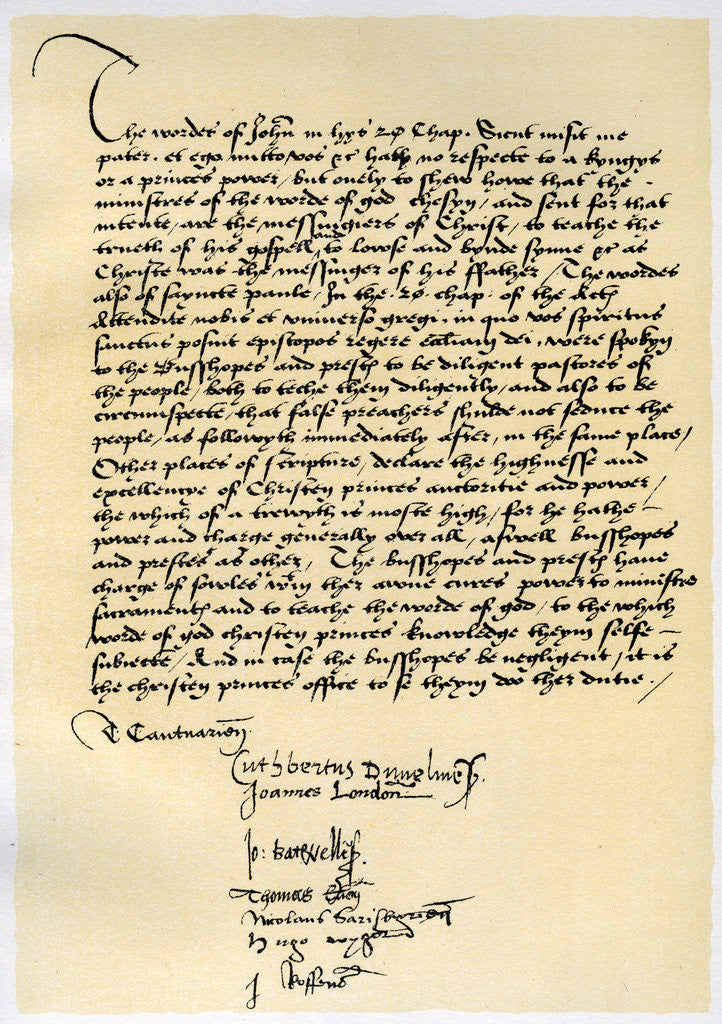 The wordes of John in hys 20 Chap. Sicut misit me
pater. et ego mitto vos &c hath no respecte to a kyngys
or a princes power / but onely to shew howe that the
ministres of the worde of god chosyn / and sent for that
intente / are the messingiers of Christ / to teache the
trueth of his gospell and to lowse and bynde synne &c as
Christe was the messinger of his ffather / The wordes
also of sayncte paule / In the .20. chap. of the Act
Attendite vobis et universo gregi. in quo vos spiritus
sanctus posuit episcopos regere eccliam dei. were spokyn
to the Busshopes and prest to be diligent pastores of
the people / both to teche them diligently / and also to be
circumspecte / that false preachers shulde not seduce the
people / as followyth immediately after, in the same place /
Other places of scripture / declare the highnesse and
excellencye of Christen princes auctoritie and power /
the which of a trewyth is moste high / for he hathe -
power and charge generally over all / aswell busshopes
and prestes as other / The busshopes and prest have
charge of sowles wtin ther awne cures power to ministre
sacrament and to teache the worde of god / to the which
worde of god christen princes knowledge theym selfe -
subiecte / And in case the busshopes be negligent / it is
the christen princes office to se theym doo ther dutie . /
T. Cantuarien
Cuthbertus Dunelmes
Joannes London
Jo: batwellis
Thomas Elien
Nicolaus Sarisburien
Hugo wygorn
J Roffens